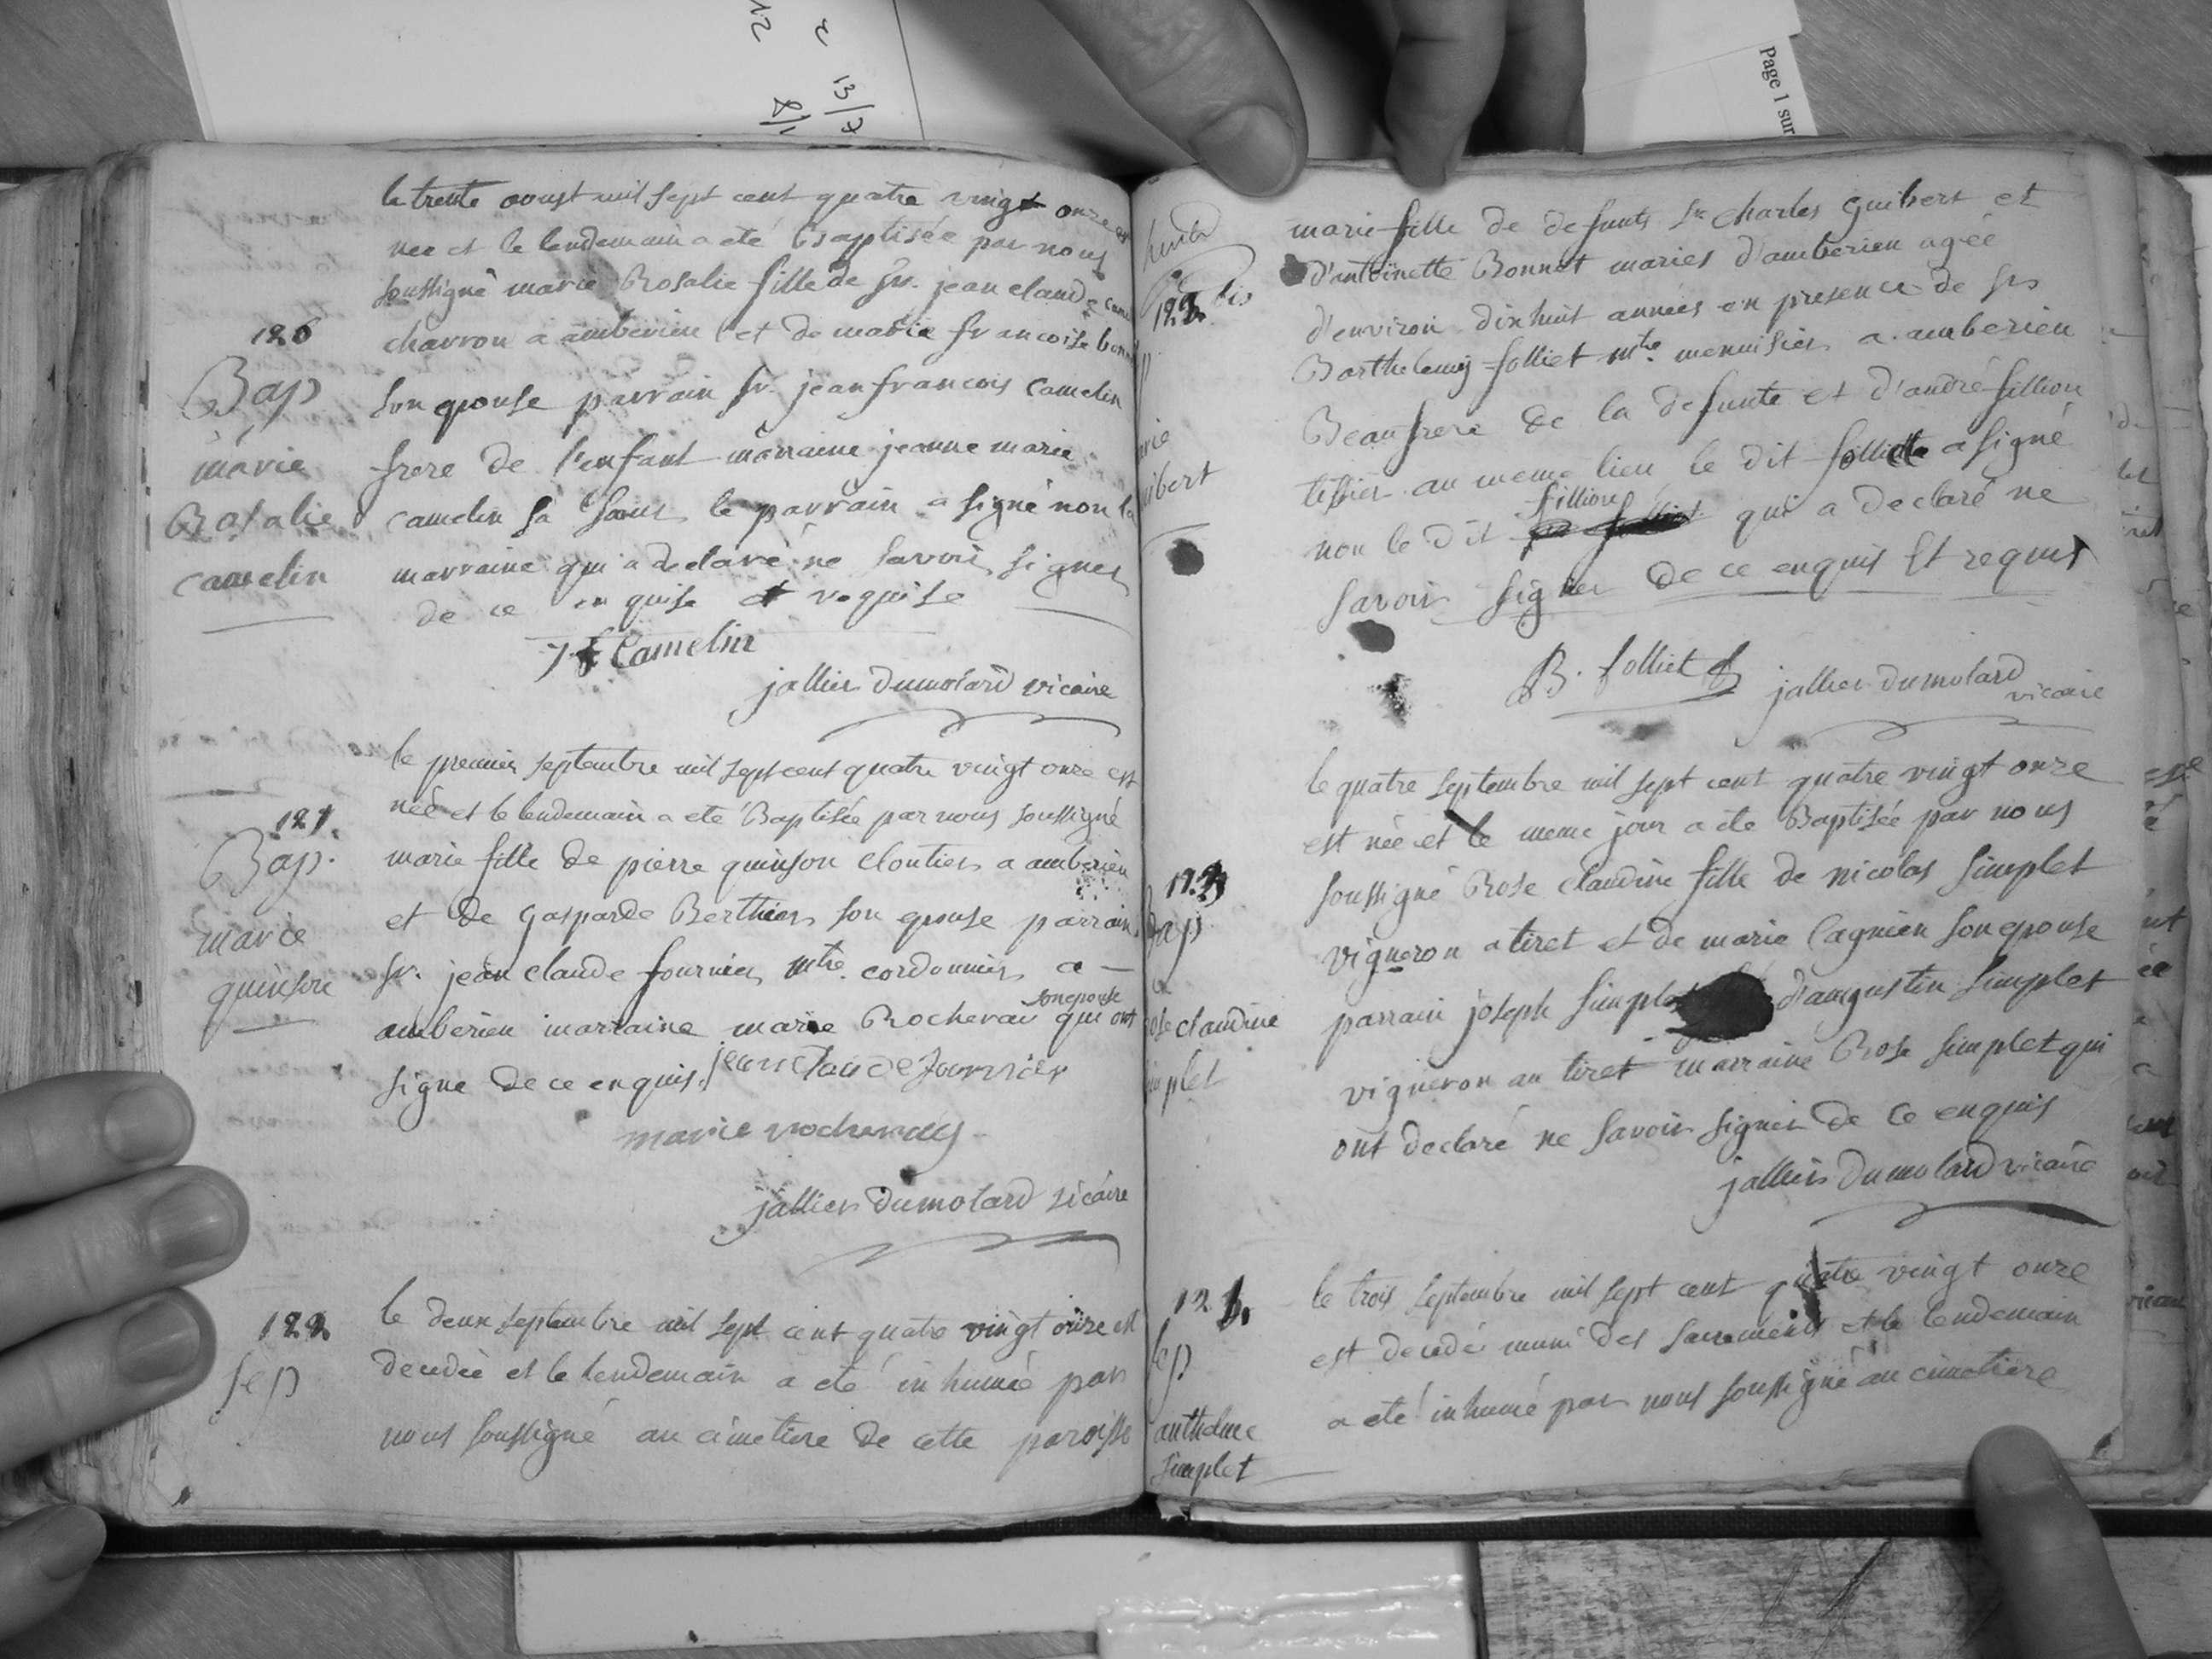 12
13/7
8/1
Page 1 sur
le trente aoust mil sept cent quatre vingt onze est
née et le lendemain a eté Baptisée par nous
soussigné marie Rosalie fille de sr. jean claude
126
charron a amberieu et de marie francoise
Bap
son epouse parrain sr. jean francois camelin
marie
frere de l'enfant marraine jeanne marie
Rosalie
camelin sa soeur le parrain a signé non la
camelin
marraine qui a declaré ne savoir signer
de ce enquise et requise
j f Camelin
jallier dumolard vicaire
le premier septembre mil sept cent quatre vingt onze est
née et le lendemain a eté Baptisée par nous soussigné
121.
Bap.
marie fille de pierre quinson cloutier a amberieu
marie
et de gasparde Berthier son epouse parrain
quinson
sr. jean claude fournier mtre. cordonnier a
son epouse
amberieu marraine marie Rocheray qui ont
signe de ce enquis. jean claude fournier
marie rocheray
jallier dumolard vicaire
122.
le deux septembre mil sept cent quatre vingt onze est
sep
decedée et le lendemain a eté inhumée par
nous soussigné au cimetiere de cette paroisse
marie fille de defunts sr charles guibert et
d'antoinette Bonnet mariés d'amberieu agée
122. bis
d'environ dix huit années en presence de srs
Barthelemy folliet mtre. menuisier a amberieu
Beaufrere de la defunte et d'andré fillion
arie
tissier au meme lieu le dit folliet a signé
uibert
fillion
non le dit qui a declaré ne
savoir signer de ce enquis Et requis
B. folliet
jallier dumolard
vicaire
le quatre septembre mil sept cent quatre vingt onze
est née et le meme jour a ete Baptisée par nous
123
soussigné Rose claudine fille de nicolas simplet
Bap
vigneron a tiret et de marie Cagnien son epouse
ose claudine
parrain joseph simplet d'augustin simplet
implet
vigneron au tiret marraine Rose simplet qui
ont declaré ne savoir signer de ce enquis
jallier dumolard vicaire
le trois septembre mil sept cent quatre vingt onze
sep
est decedé muni des sacrements et le lendemain
a eté inhumé par nous soussigné au cimetiere
anthelme
simplet